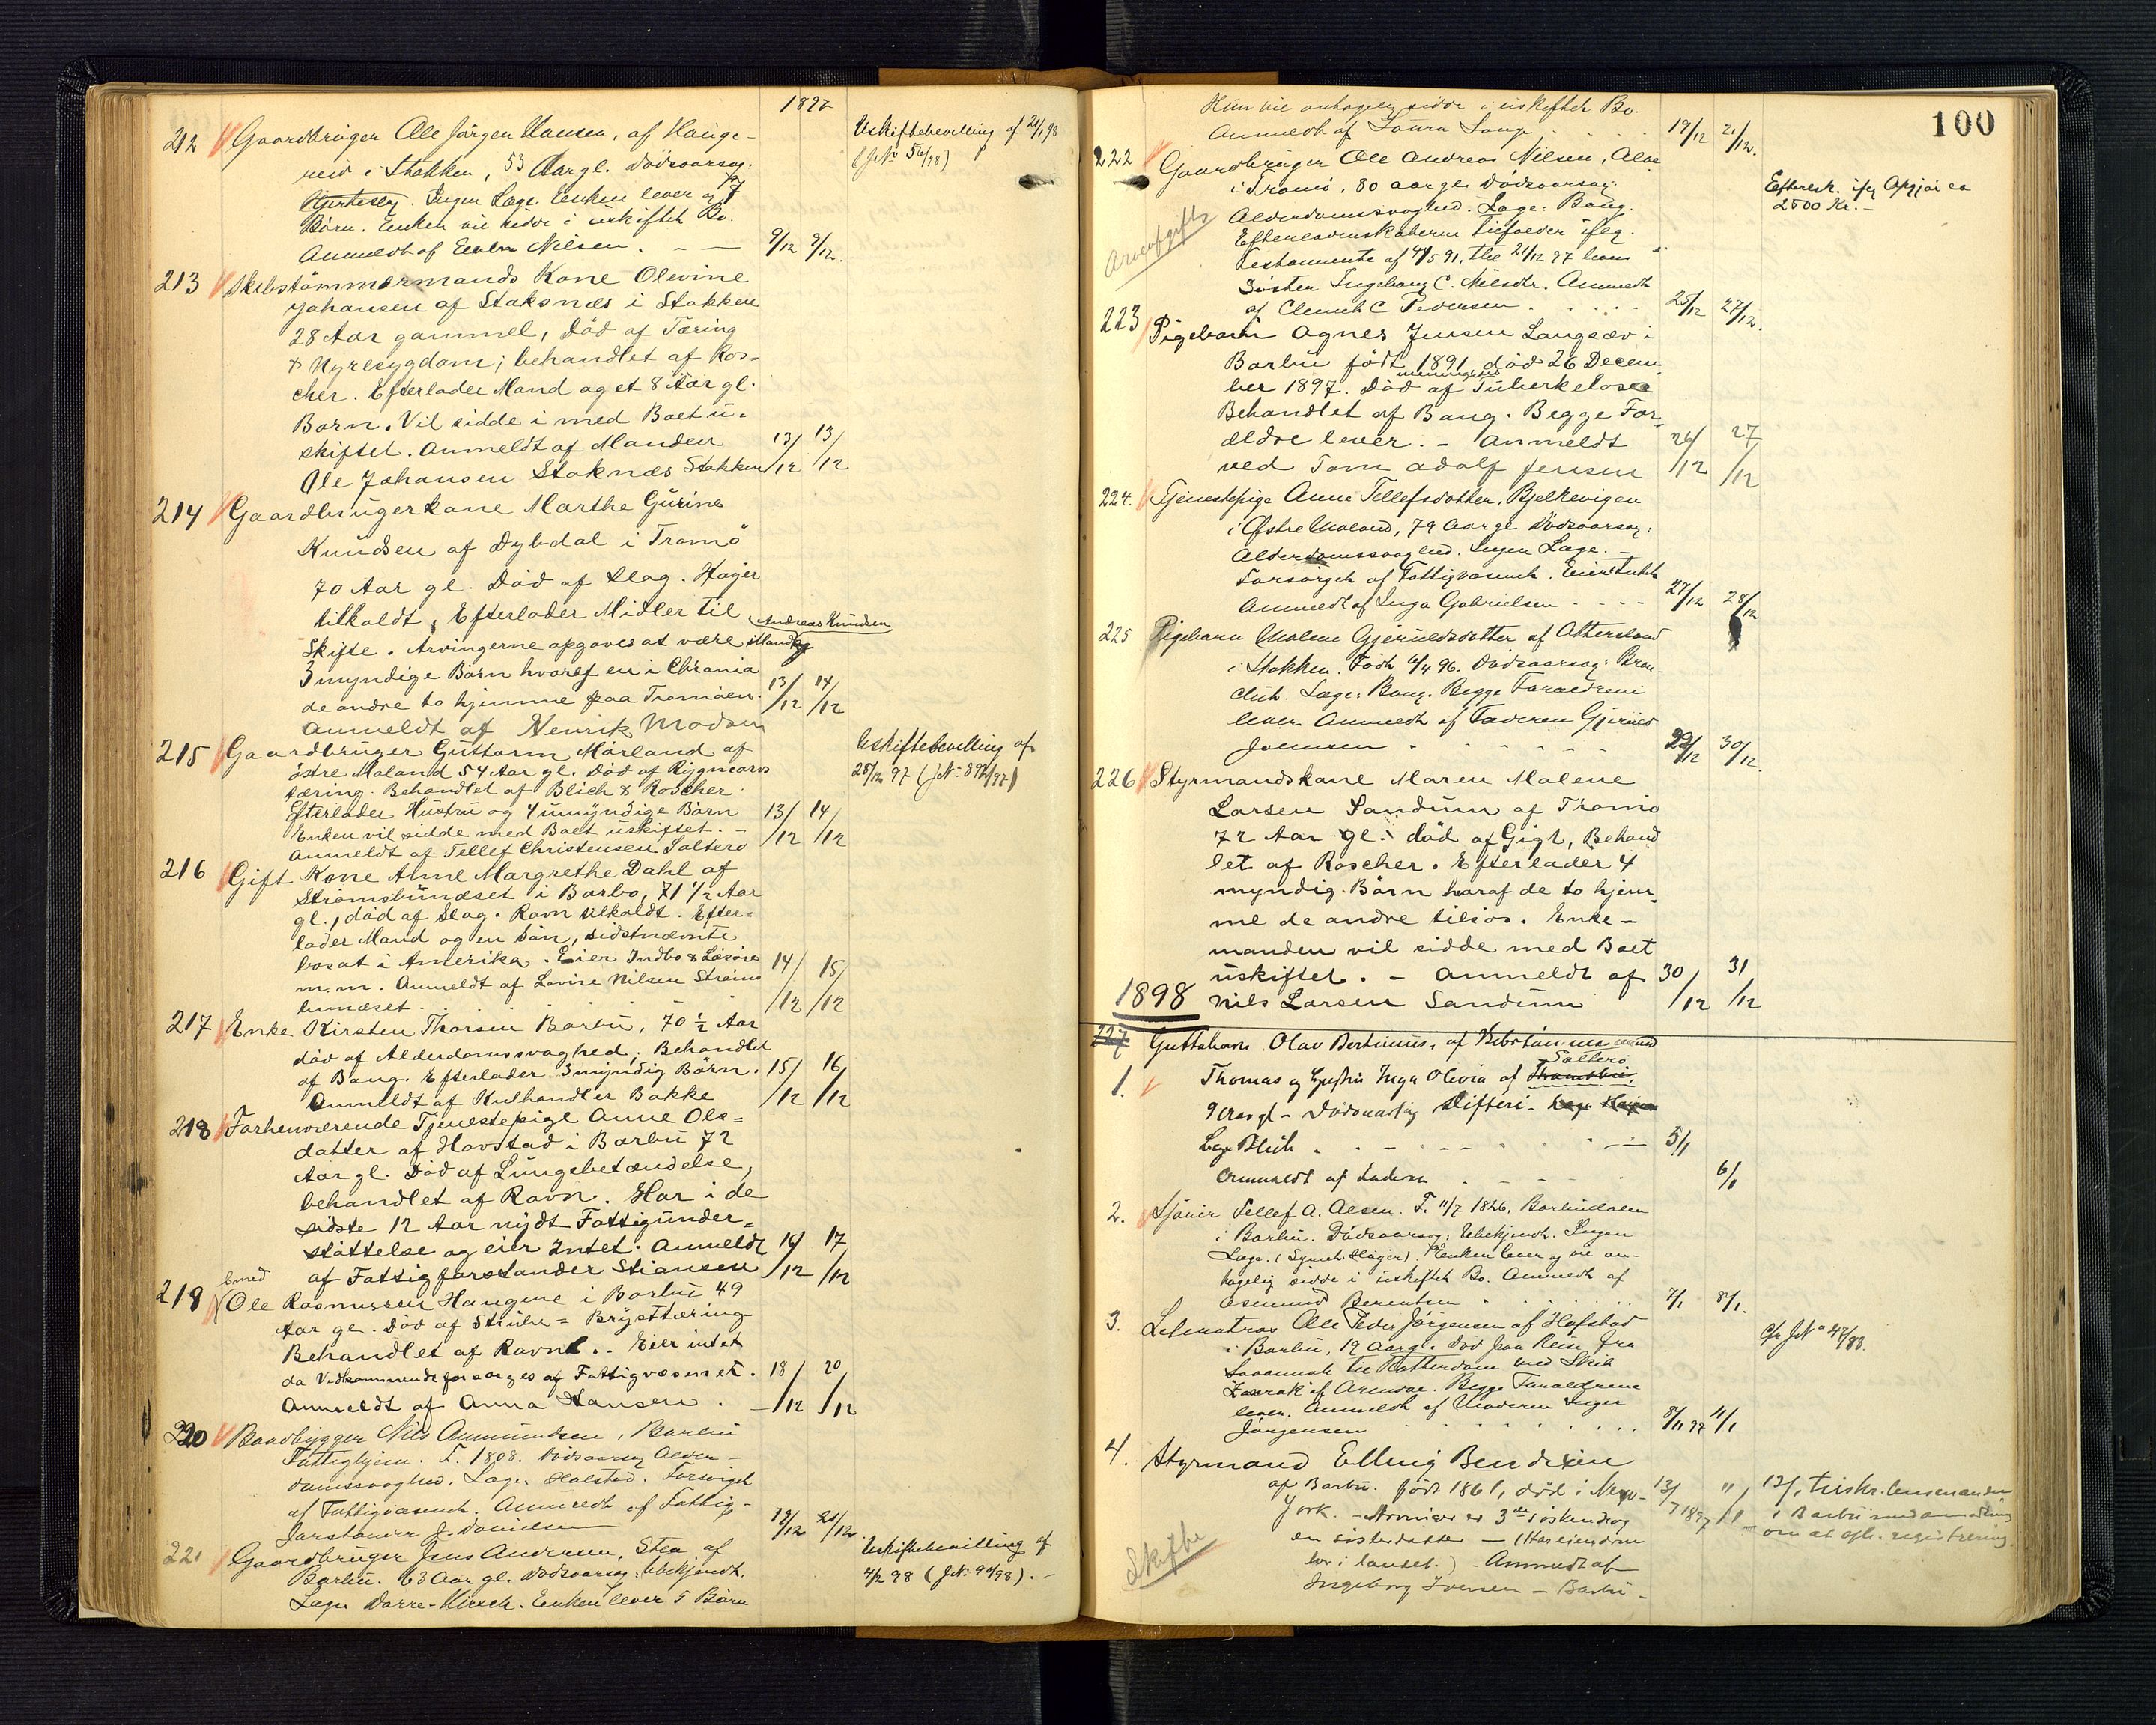 1897
212 Gaardbruger Ole Jörgen Hansen, af Hauge-
neid i Stokken, 53 Aar gl. Dödsaarsag:
Hjerteslag. Ingen Læge. Enken lever og 7
Børn. Enken vil sidde i uskiftet Bo.
Anmeldt af Evald Nilsen. 9/12 9/12.
Uskiftebevilling af 24/1 98
(J.No 56/98)
213 Skibstömmermands Kone Olevine
Johansen af Staksnæs i Stokken
28 Aar gammel, Död af Tæring
& Nyresygdom; behandlet af Ros-
cher. Efterlader Mand og et 8 Aar gl.
Barn. Vil sidde i med Boet u-
skiftet. Anmeldt af Manden
Ole Johansen Staknæs Stokken 13/12 13/12
214 Gaardbrugerkone Marthe Gurine
Knudsen af Dybdal i Tromö
70 Aar gl. Död af Slag. Høyer
tilkaldt, Efterlader Midler til
Skifte. Arvingerne opgaves at være Mand Andreas Knudsen og
3 myndige Börn hvoraf en i Chrania
de andre to hjemme paa Tromöen. 13/12 14/12
Anmeldt af Henrik Madsen
215 Gaardbruger Guttorm Mörland af
östre Moland 54 Aar gl. Död af Rygmarvs
tæring. Behandlet af Blich & Roscher.
Efterlader Hustru og 4 umyndige Börn
Enken vil sidde med Boet uskiftet. -
Anmeldt af Tellef Christensen Salterö 13/12 14/12
Uskiftebevilling af
28/12 97 (J.No: 892/97)
216 Gift Kone Anne Margrethe Dahl af
Strömsbunæset i Barbo, 71 1/2 Aar
gl., död af Slag. Ravn tilkaldt. Efter-
lader Mand og en Sön, sidstnævnte
bosat i Amerika. Eier Indbo & Løsöre
m.m. Anmeldt af Lovise Nilsen Ströms
bunæset. 14/12 15/12
217 Enke Kirsten Thorsen Barbu, 70 1/2 Aar
död af Alderdomssvaghed, Behandlet
af Bang. Efterlader 3 myndig Börn.
Anmeldt af Kulhandler Bakke 15/12 16/12
218 Forhenværende Tjenestepige Anne Ols-
datter af Havstad i Barbu 72
Aar gl. Död af Lungebetændelse,
behandlet af Ravn. Har i de
sidste 12 Aar nydt Fattigunder-
støttelse og eier Intet. Anmeldt
af Fattigforstander Stiansen 16/12 17/12
218 Smed Ole Rasmussen Haugene i Barbu 49
Aar gl. Död af Strube = Brysttæring
Behandlet af Ravn. Eier intet
da Vedkommende forsørges af Fattigvæsenet.
Anmeldt af Anna Hansen. 18/12 20/12
220 Baadbygger Nils Anmundsen, Barbu
Fattighjem. F. 1808. Dödsaarsag Alder-
domssvaghed. Læge: Holstad. Forsørget
af Fattigvæsenet. Anmeldt af Fattig-
forstander J. Danielsen 19/12 21/12
221 Gaardbruger Jens Andersen, Stea af
Barbu. 63 Aar gl. Dödsaarsag: Ubekjendt.
Læge Darre-Hirsch. Enken lever 5 Børn
Uskiftebevilling af
4/2 98 (J.No: 94/98). -
100
Hun vil antagelig sidde i uskiftet Bo.
Anmeldt af Laura Lange 19/12 21/12.
222 Gaardbruger Ole Andreas Nilsen, Alve
i Tromö, 80 aar gl. Dödsaarsag:
Alderdomssvaghed. Læge: Bang.
Efterladenskaberne tilfalder iflg.
Testamente af 14/5 91, thl. 21/12 97 hans
Søster Ingeborg C. Nilsdtr. Anmeldt
af Clemet C Pedersen. 25/12 27/12.
Arveafgift
Efterl. iflg Opgjør ca
2500 Kr. -
223 Pigebarn Agnes Jensen Langsæv i
Barbu født 1891, död 26 Decem
ber 1897. Död af Tuberkelose
Behandlet af Bang. Begge For-
ældre lever. - Anmeldt
ved Tom Adolf Jensen 26/12 27/12
224. Tjenestepige Anne Tellefsdatter, Bjelkevigen
i Østre Moland, 79 Aar gl Dödsaarsag:
Alderdomssvaghed. Ingen Læge. -
Forsørget af Fattigvæsenet. Eier Intet
Anmeldt af Inga Gabrielsen 27/12 28/12
225 Pigebarn Malene Gjeruldsdatter af Ottersland
i Stokken. Født 6/4 96. Dödsaarsag: Bron-
chit. Læge: Bang. Begge Forældrene
lever Anmeldt af Faderen Gjeruld
Joensen 29/12 30/12.
226 Styrmandskone Maren Malene
Larsen Sandum af Tromö
72 Aar gl. död af Gigt, Behand
let af Roscher. Efterlader 4
myndig. Börn hvoraf de to hjem-
me de andre tilsjös. Enke-
manden vil sidde med Boet
uskiftet. - Anmeldt af
Nils Larsen Sandum 30/12 31/12
1898
227 Guttebarn Olav Bertinius, af
1. Thomas og Hustru Inga Olivia af Salterö
9 Aar gl - Dödsaarsag Difteri -
Læge Blich 5/1
Anmeldt af Faderen 6/1
2. Sjömand Tellef A. Olsen. F. 11/7 1826, Barbudalen
i Barbu. Dödsaarsag: Ubekjendt. Ingen
Læge. (Synet Höyer). Enken lever og vil an-
tagelig sidde i uskiftet Bo. Anmeldt af
Osmund Berentsen 7/1 8/1.
3. Letmatros Ole Peder Jörgensen af Hofstad
i Barbu, 19 Aar gl. Död paa Reise fra
Savannah til Rotterdam med Skib
af Arendal. Begge Forældrene
lever. Anmeldt af Moderen Inger
Jörgensen 8/11 97 11/1
Cfr J.No 47/98.
4. Styrmand Elling Bendixen
af Barbu. født 1861, død i New-
York. - Arvinger er 3de søsken og
en søsterdatter - (Har eiendom
her i landet.) - Anmeldt af
Ingeborg Iversen - Barbu -
13/7 1897 11/1
Skifte
12/1 tilskr. lensmanden
i Barbu med anmodning
om at eft. registrering.